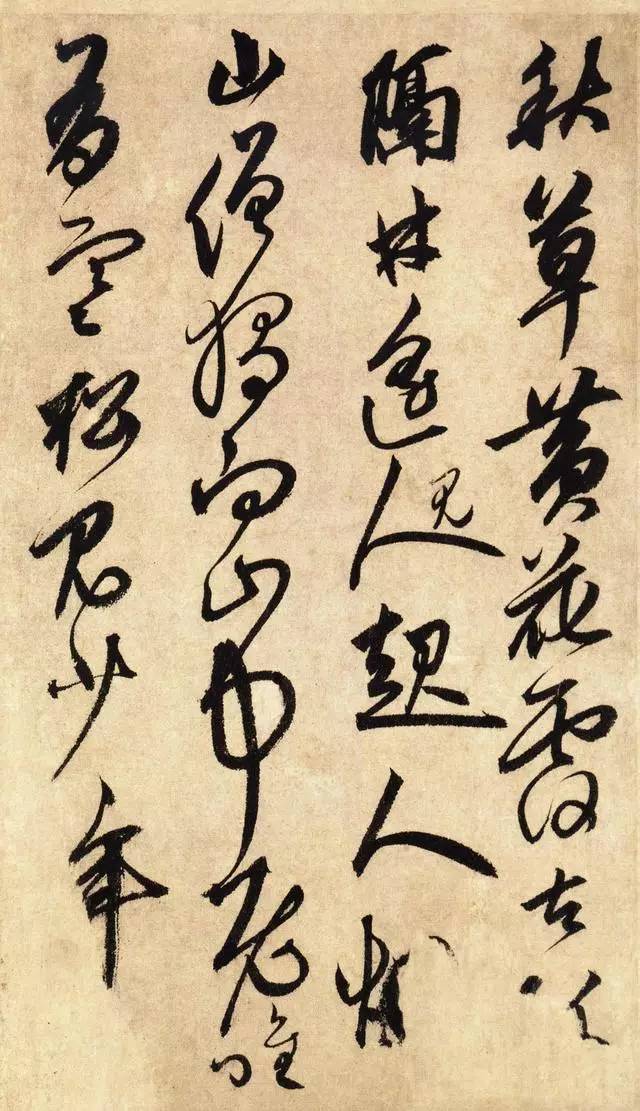 秋草黄花覆古阡
隔林遥人見起人煙
山僧獨向山中老唯
有寒松見少年